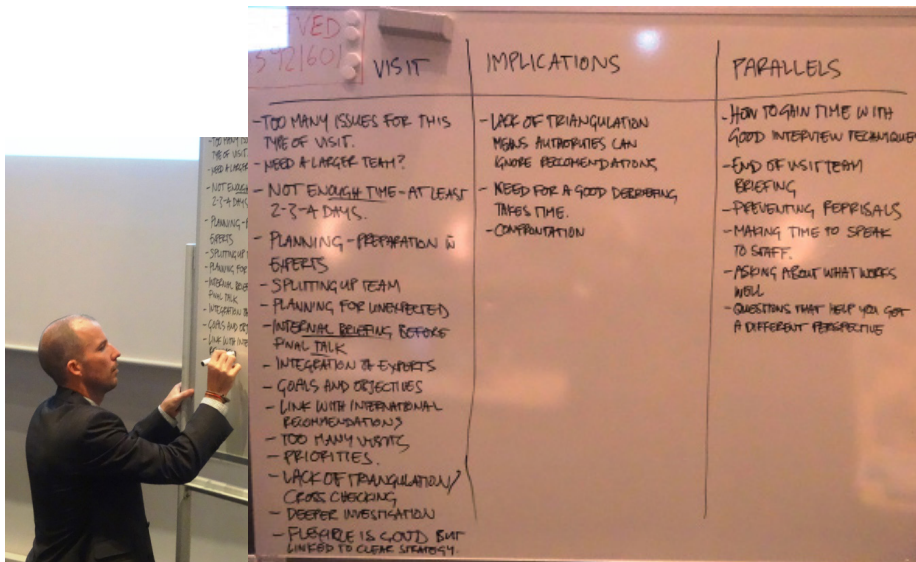 VED
5421601
VISIT
- TOO MANY ISSUES FOR THIS
TYPE OF VISIT.
- NEED A LARGER TEAM?
- NOT ENOUGH TIME - AT LEAST
2-3-4 DAYS.
- PLANNING - PREPARATION
EXPERTS
- SPLITTING UP TEAM
- PLANNING FOR UNEXPECTED
- INTERNAL BRIEFING BEFORE
FINAL TALK
- INTEGRATION OF EXPERTS
- GOALS AND OBJECTIVES
- LINK WITH INTERNATIONAL
RECOMMENDATIONS
- TOO MANY VISITS
- PRIORITIES.
- LACK OF TRIANGULATION/
CROSS CHECKING
- DEEPER INVESTIGATION
- FLEXIBLE IS GOOD BUT
LINKED TO CLEAR STRATEGY.
IMPLICATIONS
- LACK OF TRIANGULATION
MEANS AUTHORITIES CAN
IGNORE RECOMENDATIONS
- NEED FOR A GOOD DEBRIEFING
TAKES TIME.
- CONFRONTATION
PARALLELS
- HOW TO GAIN TIME WITH
GOOD INTERVIEW TECHNIQUE
- END OF VISIT TEAM
BRIEFING
- PREVENTING REPRISALS
- MAKING TIME TO SPEAK
TO STAFF.
- ASKING ABOUT WHAT WORKS
WELL
- QUESTIONS THAT HELP YOU GET
A DIFFERENT PERSPECTIVE
- TOO MANY
TYPE OF VISIT.
- NEED A LARGER
- NOT ENOUGH
2-3-4 DAYS
- PLANNING -
EXPERTS
- SPLITTING UP
- PLANNING FOR
- INTERNAL
FINAL TALK
- INTEGRATION
- GOALS AND
- LINK WITH